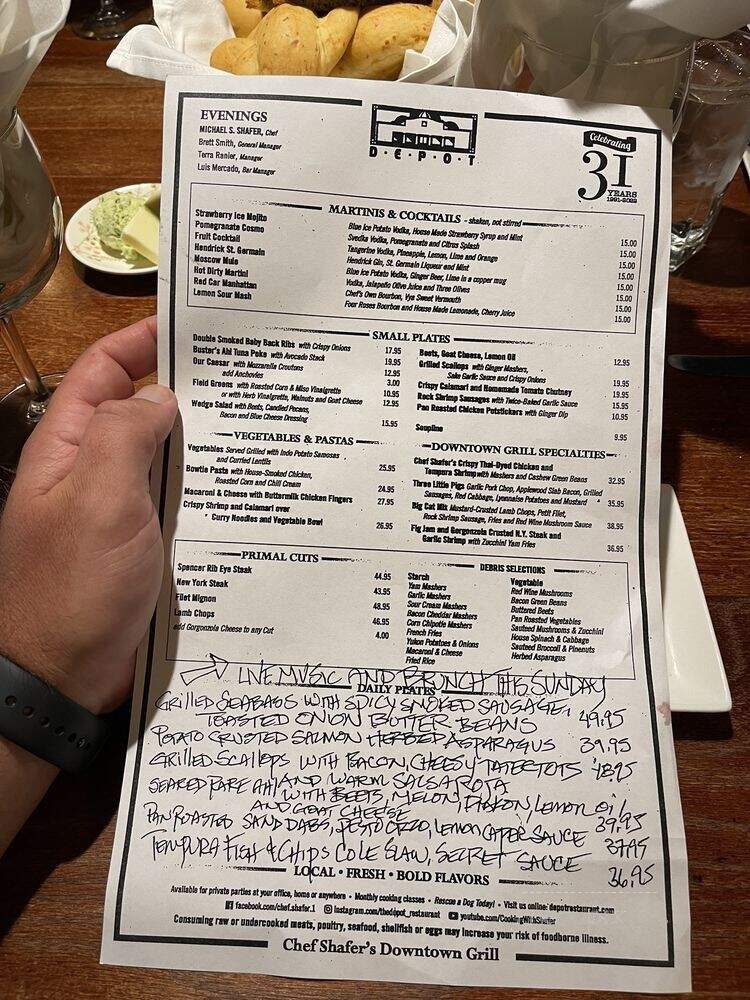 EVENINGS
MICHAEL S. SHAFER, Chef
Brett Smith, General Manager
Terra Ranier, Manager
Luis Mercado, Bar Manager
DEPOT
Celebrating
31
YEARS
1991-2022
MARTINIS & COCKTAILS - shaken, not stirred
Strawberry Ice Mojito Blue Ice Potato Vodka, House Made Strawberry Syrup and Mint 15.00
Pomegranate Cosmo Svedka Vodka, Pomegranate and Citrus Splash 15.00
Fruit Cocktail Tangerine Vodka, Pineapple, Lemon, Lime and Orange 15.00
Hendrick St. Germain Hendrick Gin, St. Germain Liqueur and Mint 15.00
Moscow Mule Blue Ice Potato Vodka, Ginger Beer, Lime in a copper mug 15.00
Hot Dirty Martini Vodka, Jalapeño Olive Juice and Three Olives 15.00
Red Car Manhattan Chef's Own Bourbon, Vya Sweet Vermouth 15.00
Lemon Sour Mash Four Roses Bourbon and House Made Lemonade, Cherry Juice 15.00
SMALL PLATES
Double Smoked Baby Back Ribs with Crispy Onions 17.95
Buster's Ahi Tuna Poke with Avocado Stack 19.95
Our Caesar with Mozzarella Croutons 12.95
add Anchovies 3.00
Field Greens with Roasted Corn & Miso Vinaigrette 10.95
or with Herb Vinaigrette, Walnuts and Goat Cheese 12.95
Wedge Salad with Beets, Candied Pecans,
Bacon and Blue Cheese Dressing 15.95
Beets, Goat Cheese, Lemon Oil 12.95
Grilled Scallops with Ginger Mashers,
Sake Garlic Sauce and Crispy Onions 19.95
Crispy Calamari and Homemade Tomato Chutney 19.95
Rock Shrimp Sausages with Twice-Baked Garlic Sauce 15.95
Pan Roasted Chicken Potstickers with Ginger Dip 10.95
Soupline 9.95
VEGETABLES & PASTAS
Vegetables Served Grilled with Indo Potato Samosas
and Curried Lentils 25.95
Bowtie Pasta with House-Smoked Chicken,
Roasted Corn and Chili Cream 24.95
Macaroni & Cheese with Buttermilk Chicken Fingers 27.95
Crispy Shrimp and Calamari over
Curry Noodles and Vegetable Bowl 26.95
DOWNTOWN GRILL SPECIALTIES
Chef Shafer's Crispy Thai-Dyed Chicken and
Tempura Shrimp with Mashers and Cashew Green Beans 32.95
Three Little Pigs Garlic Pork Chop, Applewood Slab Bacon, Grilled
Sausages, Red Cabbage, Lyonnaise Potatoes and Mustard 35.95
Big Cat Mix Mustard-Crusted Lamb Chops, Petit Filet,
Rock Shrimp Sausage, Fries and Red Wine Mushroom Sauce 38.95
Fig Jam and Gorgonzola Crusted N.Y. Steak and
Garlic Shrimp with Zucchini Yam Fries 36.95
PRIMAL CUTS
Spencer Rib Eye Steak 44.95
New York Steak 43.95
Filet Mignon 48.95
Lamb Chops 46.95
add Gorgonzola Cheese to any Cut 4.00
DEBRIS SELECTIONS
Starch
Yam Mashers
Garlic Mashers
Sour Cream Mashers
Bacon Cheddar Mashers
Corn Chipotle Mashers
French Fries
Yukon Potatoes & Onions
Macaroni & Cheese
Fried Rice
Vegetable
Red Wine Mushrooms
Bacon Green Beans
Buttered Beets
Pan Roasted Vegetables
Sauteed Mushrooms & Zucchini
House Spinach & Cabbage
Sauteed Broccoli & Pinenuts
Herbed Asparagus
LIVE MUSIC AND BRUNCH THIS SUNDAY
DAILY PLATES
GRILLED SEABASS WITH SPICY SMOKED SAUSAGE,
TOASTED ONION BUTTER BEANS 49.95
POTATO CRUSTED SALMON HERBED ASPARAGUS 39.95
GRILLED SCALLOPS WITH BACON, CHEESY TATERTOTS 48.95
AND WARM SALSA ROJA
SEARED RARE AHI WITH BEETS, MELON, LEMON OIL
AND GOAT CHEESE 39.95
PAN ROASTED SAND DABS, PESTO ORZO, LEMON CAPER SAUCE 37.95
TEMPURA FISH & CHIPS COLE SLAW, SECRET SAUCE 36.95
LOCAL • FRESH • BOLD FLAVORS
Available for private parties at your office, home or anywhere • Monthly cooking classes • Rescue a Dog Today! • Visit us online: depotrestaurant.com
facebook.com/chef.shafer.1 instagram.com/thedepot_restaurant youtube.com/CookingWithShafer
Consuming raw or undercooked meats, poultry, seafood, shellfish or eggs may increase your risk of foodborne illness.
Chef Shafer's Downtown Grill